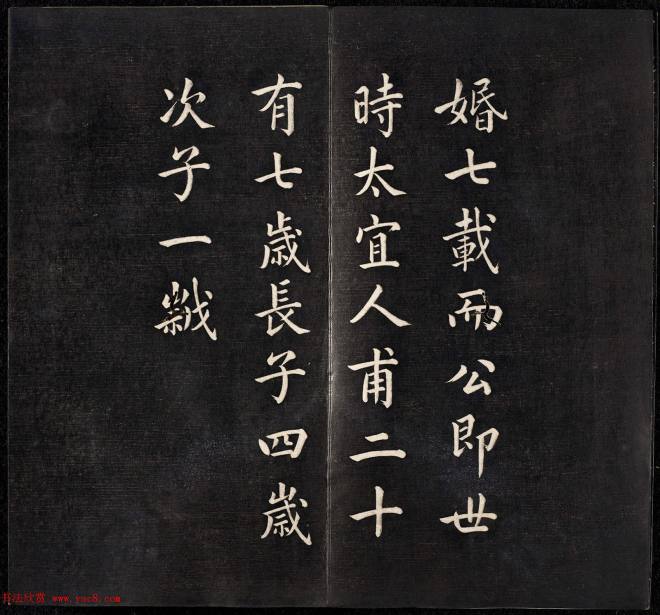 婚七載而公即世
時太宜人甫二十
有七歲長子四歲
次子一歲
书法欣赏 www.yac8.com